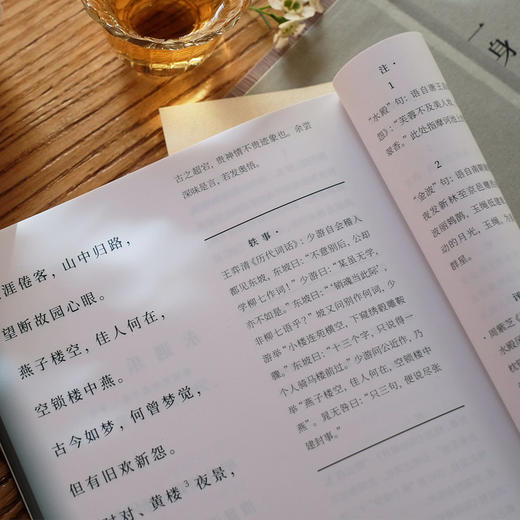 涯倦客，山中归路，
望断故园心眼。
燕子楼空，佳人何在，
空锁楼中燕。
古今如梦，何曾梦觉，
但有旧欢新怨。
对、黄楼³夜景，
古之超宕，贵神情不贵迹象也。余尝
深味是言，若发奥悟。
轶事·
王弈清《历代词话》：少游自会稽入
都见东坡，东坡曰：“不意别后，公却
学柳七作词！”少游曰：“某虽无学，
亦不如是。”东坡曰：“‘销魂当此际’，
非柳七语乎？”坡又问别作何词，少
游举“小楼连苑横空，下窥绣毂雕鞍
骤”。东坡曰：“十三个字，只说得一
个人骑马楼前过。”少游问公近作，乃
举“燕子楼空，佳人何在，空锁楼中
燕”。晁无咎曰：“只三句，便说尽张
建封事。”
注·
1
“水殿”句：语自唐王昌
怨》：“芙蓉不及美人妆
晏香。”此处指摩诃池上
2
“金波”句：语自南朝
夜发新林至京邑
波丽鳷鹊，玉绳低建
动的月光，玉绳，为
群星。
·周紫芝《
水殿
一身